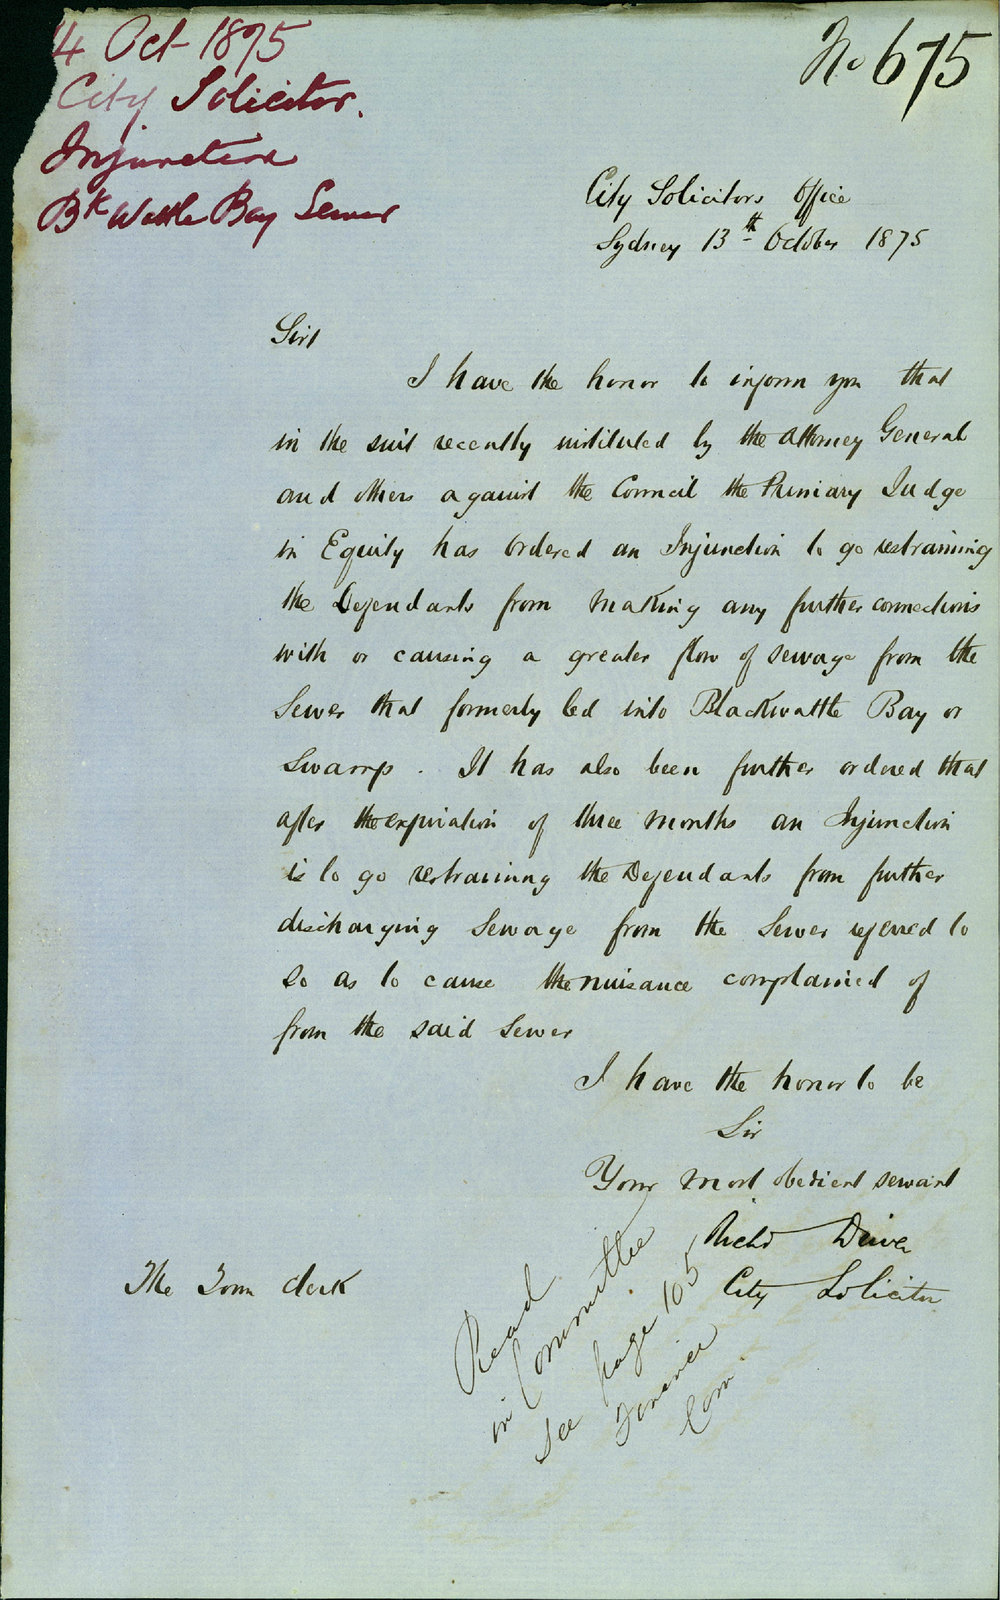 4 Oct 1875
City Solicitor.
Injunction
Bk Wattle Bay Sewer
No 675
City Solicitors Office
Sydney 13th October 1875
Sir
I have the honor to inform you that
in the suit recently instituted by the Attorney General
and others against the Council the Primary Judge
in Equity has ordered an Injunction to go restraining
the Defendants from making any further connections
with or causing a greater flow of sewage from the
Sewer that formerly led into Blackwattle Bay or
Swamp. It has also been further ordered that
after the expiration of three months an Injunction
is to go restraining the Defendants from further
discharging Sewage from the Sewer referred to
so as to cause the nuisance complained of
from the said Sewer
I have the honor to be
Sir
Your most obedient servant
Richd Driver
City Solicitor
The Town Clerk
Read
in Committee
See page 105
Finance
Com.